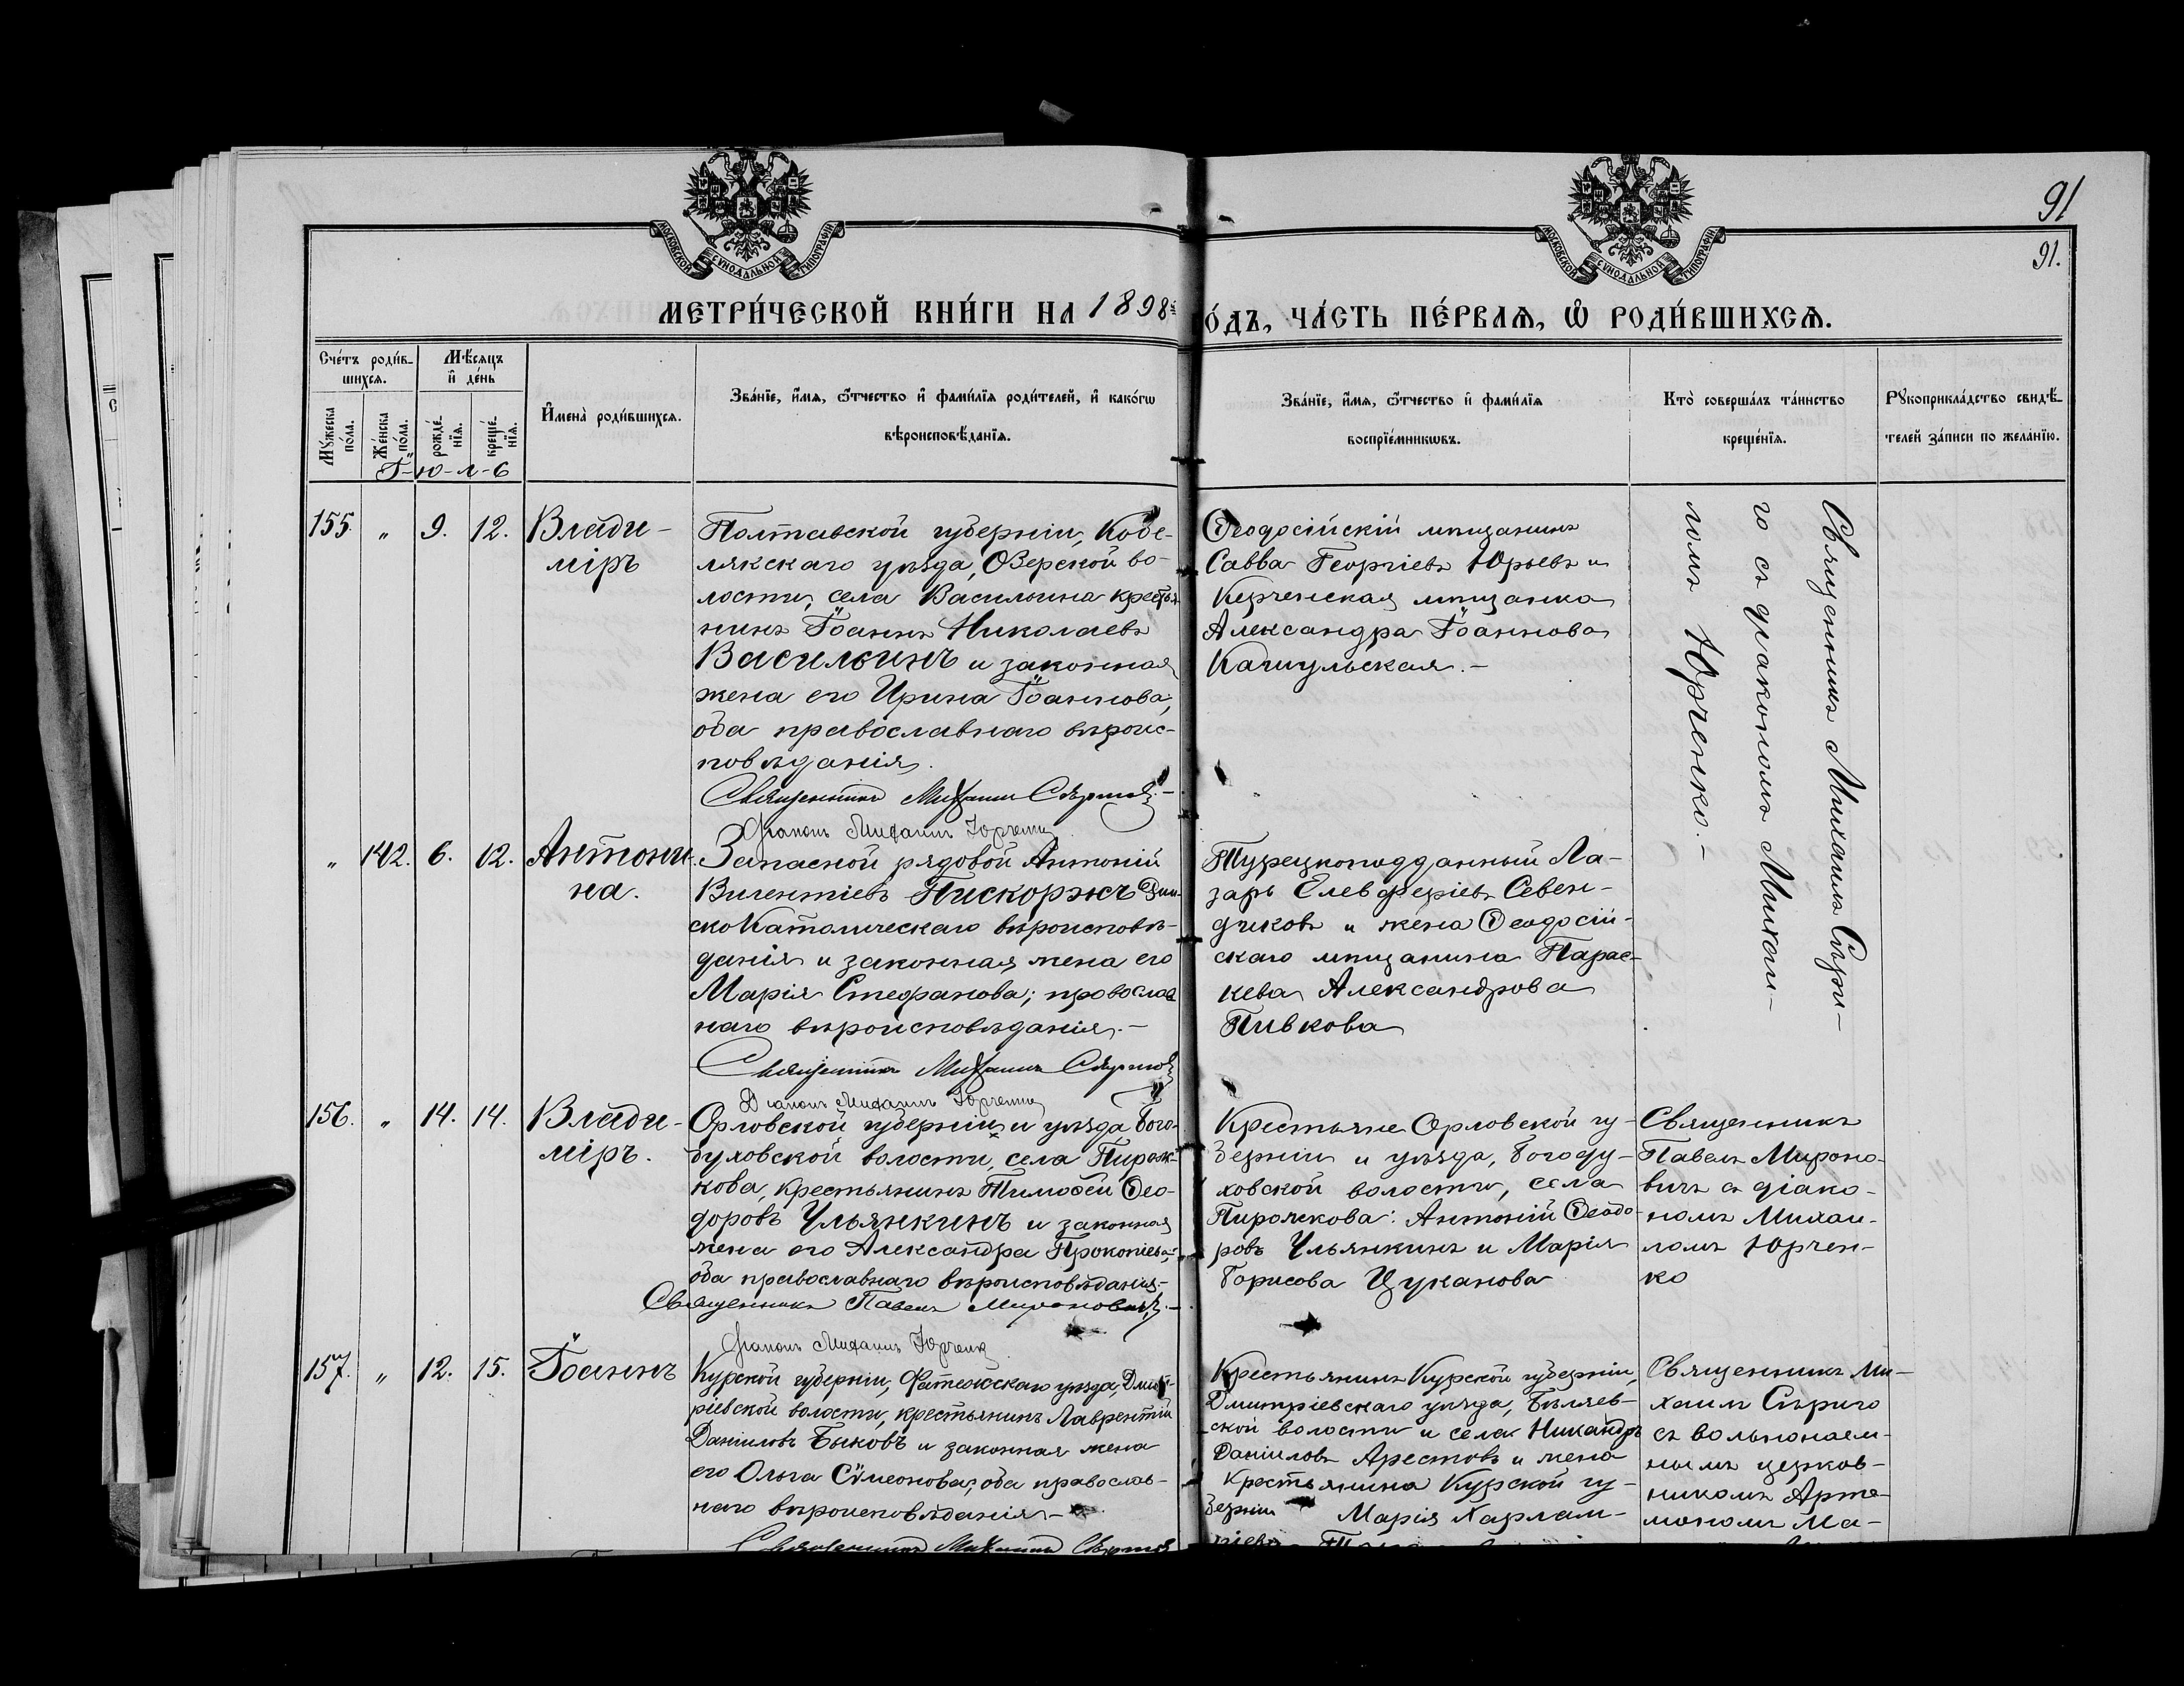 91
91.
МОСКОВСКОЙ СѴНОДАЛЬНОЙ ТИПОГРАФІИ
МОСКОВСКОЙ СѴНОДАЛЬНОЙ ТИПОГРАФІИ
МЕТРИ́ЧЕСКОЙ КНИ́ГИ НА 1898 О́ДЪ, ЧА́СТЬ ПЕ́РВАѦ, Ѡ РОДИ́ВШИХСѦ.
Сче́тъ роди́в-
шихсѧ.
Мꙋ́жеска по́ла.
Же́нска по́ла.
Мѣ́сѧцъ
и҆ де́нь
рожде́-
нїѧ.
креще́-
нїѧ.
И҆мена̀ роди́вшихсѧ.
Зва́нїе, и҆́мѧ, ѻ҆́тчество и҆ фами́лїѧ роди́телей, и҆ како́гѡ
вѣроисповѣ́данїѧ.
Зва́нїе, и҆́мѧ, ѻ҆́тчество и҆ фами́лїѧ
воспрїе́мникѡвъ.
Кто̀ соверша́лъ та́инство
креще́нїѧ.
Рꙋкоприкла́дство свидѣ́-
телей за́писи по жела́нїю.
І-ю-л-ь
155. " 9. 12. Влади-
міръ
Полтавской губерніи, Кобе-
лякскаго уѣзда, Озерской во-
лости, села Васильина крестья
нинъ Іоаннъ Николаевъ
Васильинъ и законная
жена его Ирина Іоаннова;
оба православнаго вѣроис-
повѣданія.
Священникъ Михаилъ Сѣриго
Діаконъ Михаилъ Юрченко
Ѳеодосійскій мѣщанинъ
Савва Георгіевъ Юрьевъ и
Керченская мѣщанка
Александра Іоаннова
Качульская. -
Священникъ Михаилъ Сѣри-
го съ діакономъ Михаи-
ломъ Юрченко. -
" 142. 6. 12. Антони-
на.
Запасной рядовой Антоній
Викентіевъ Пискоржъ Рим-
скоКатолическаго вѣроисповѣ-
данія и законная жена его
Марія Стефанова; православ
наго вѣроисповѣданія. -
Священникъ Михаилъ Сѣриго
Діаконъ Михаилъ Юрченко
Турецкоподданный Ла-
зарь Елевферіевъ Севен-
дчковъ и жена Ѳеодосій-
скаго мѣщанина Парас-
кева Александрова
Пивкова
156. " 14. 14. Влади-
міръ.
Орловской губерніи и уѣзда Бого-
духовской волости, села Пирож-
кова, крестьянинъ Тимоѳей Ѳео-
доровъ Ульянкинъ и законная
жена его Александра Прокопіева;
оба православнаго вѣроисповѣданія. -
Священникъ Павелъ Мироновичъ. -
Діаконъ Михаилъ Юрченко
Крестьяне Орловской гу-
берніи и уѣзда, Богоду-
ховской волости, села
Пирожкова: Антоній Ѳеодо-
ровъ Ульянкинъ и Марія
Борисова Цуканова
Священникъ
Павелъ Мироно-
вичъ съ діако-
номъ Михаи-
ломъ Юрчен-
ко
157. " 12. 15. Іоаннъ
Курской губерніи, Фатежскаго уѣзда, Дмит-
ріевской волости, крестьянинъ Лаврентій
Даніиловъ Быковъ и законная жена
его Ольга Сѵмеонова; оба православ-
наго вѣроисповѣданія. -
Священникъ Михаилъ Сѣриго
Крестьянинъ Курской губерніи,
Дмитріевскаго уѣзда, Бѣляев-
ской волости и села Никандръ
Даніиловъ Арестовъ и жена
крестьянина Курской гу-
берніи Марія Харлам-
Священникъ Ми-
хаилъ Сѣриго
съ вольнонаем-
нымъ церков-
никомъ Арте-
мономъ Ма-